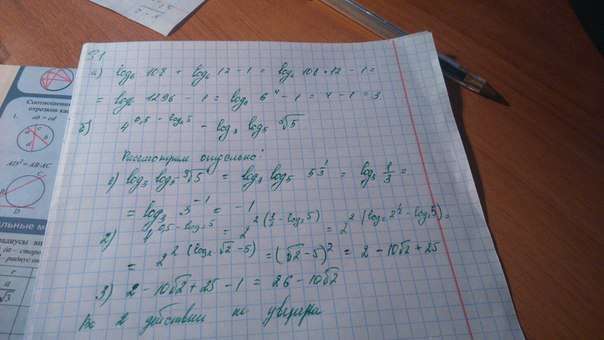 31
а) log₆ 108 + log₆ 12 − 1 = log₆ 108 · 12 − 1 =
= log₆ 1296 − 1 = log₆ 6⁴ − 1 = 4 − 1 = 3
б) 4^(0,5 − log₂5) − log₃ log₅ ∛5
Рассмотрим отдельно:
1) log₃ log₅ ∛5 = log₃ log₅ 5^(1/3) = log₃ 1/3 =
= log₃ 3⁻¹ = −1
2) 4^(0,5 − log₂5) = 2^(2(1/2 − log₂5)) = 2^(2(log₂2^(1/2) − log₂5)) =
= 2^(2(log₂ √2 − 5)) = (√2 − 5)² = 2 − 10√2 + 25
3) 2 − 10√2 + 25 − 1 = 26 − 10√2
Во 2 действии не уверена
Соотношение
отрезков кас
1.